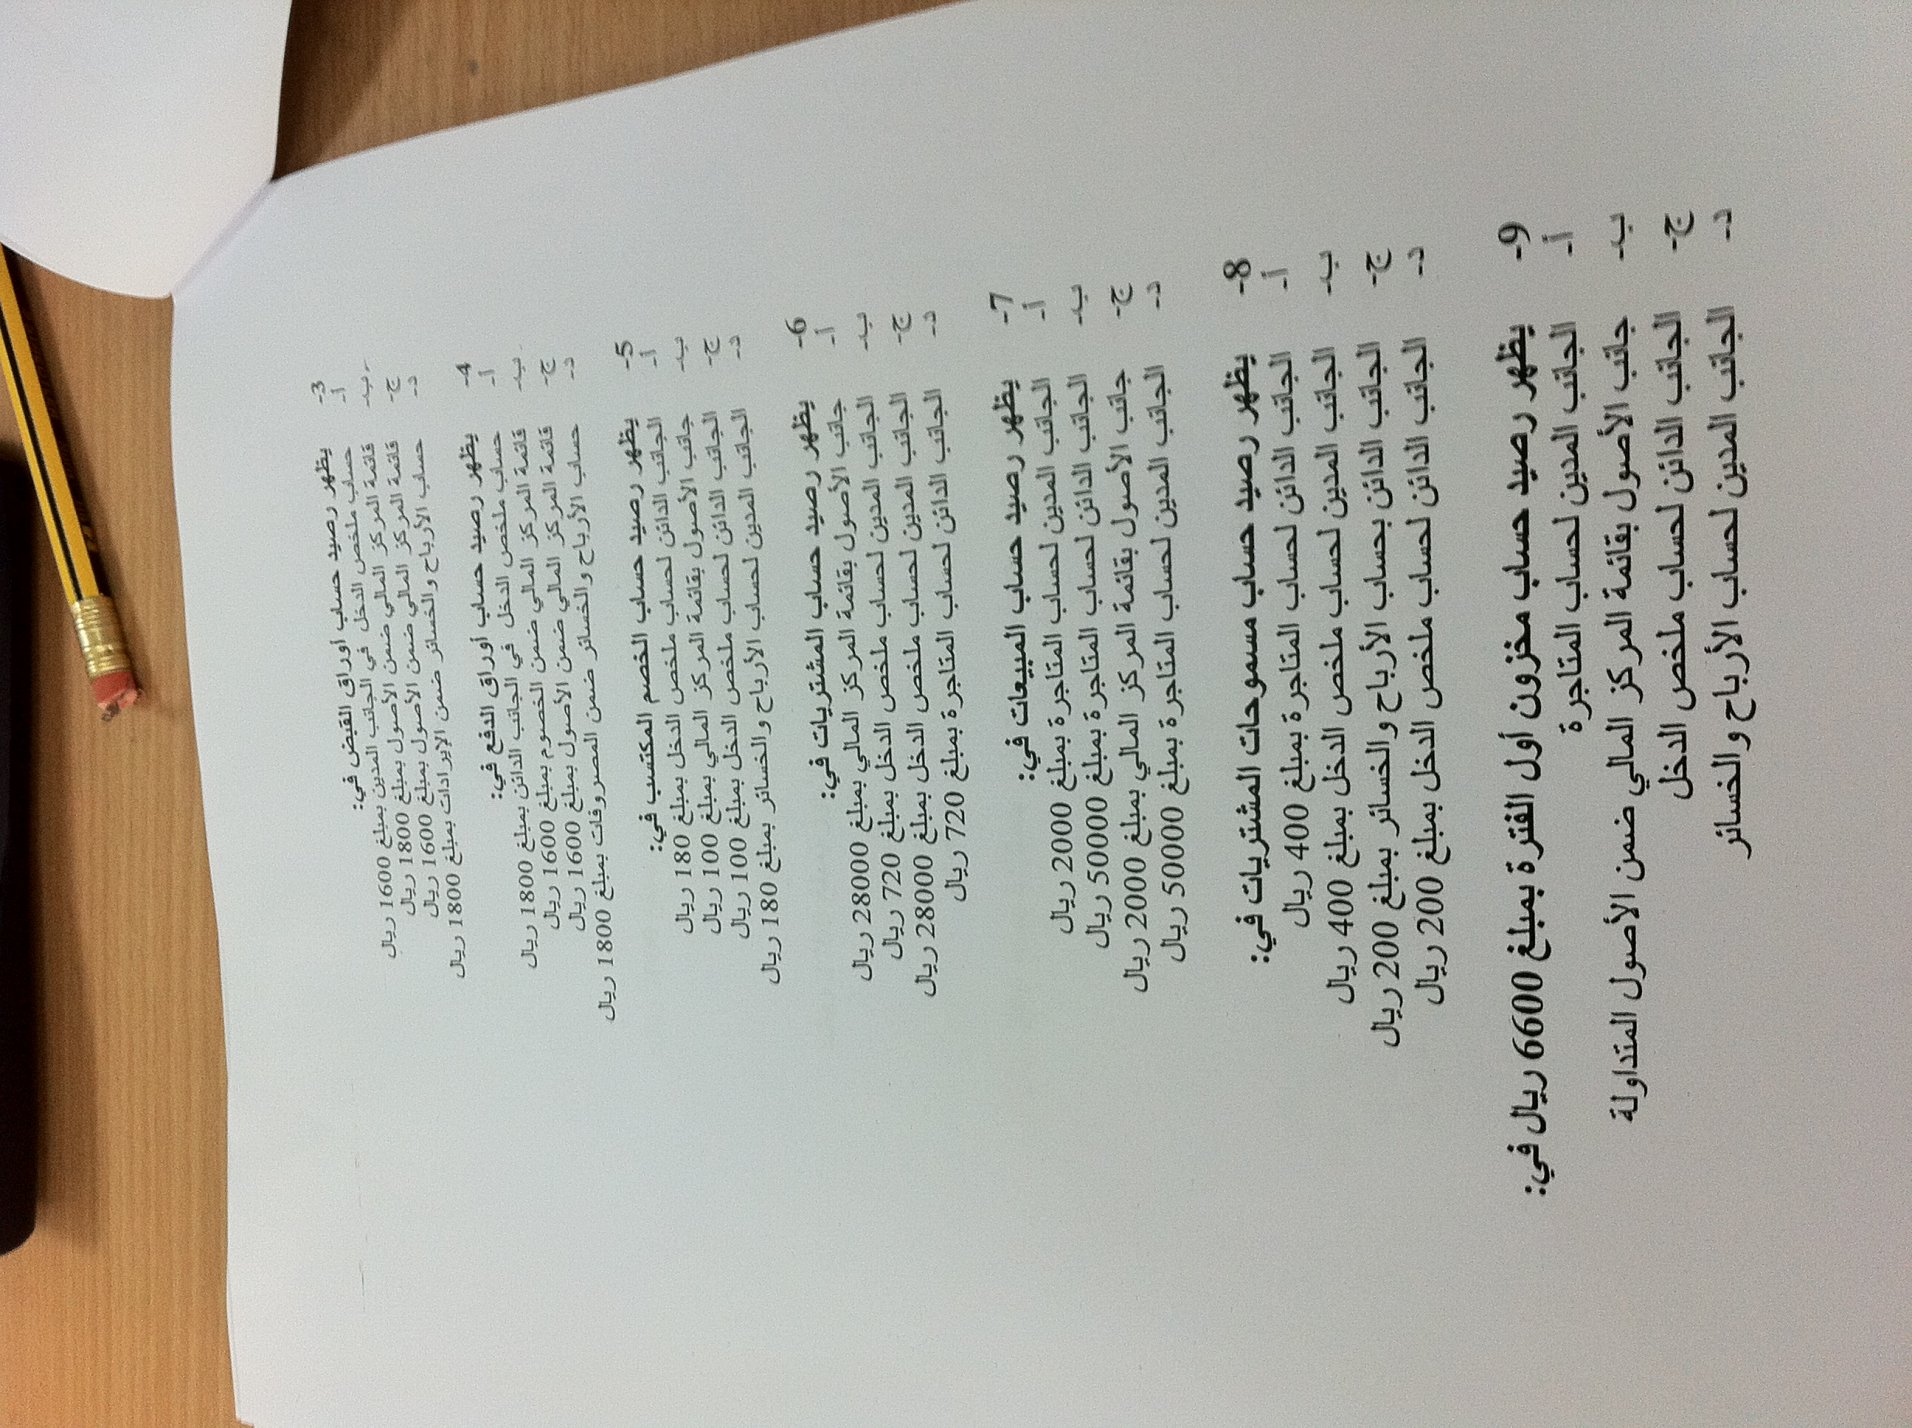 3- يظهر رصيد حساب أوراق القبض في:
أ- حساب ملخص الدخل في الجانب المدين بمبلغ 1600 ريال
ب- قائمة المركز المالي ضمن الأصول بمبلغ 1800 ريال
ج- قائمة المركز المالي ضمن الأصول بمبلغ 1600 ريال
د- حساب الأرباح والخسائر ضمن الإيرادات بمبلغ 1800 ريال
4- يظهر رصيد حساب أوراق الدفع في:
أ- حساب ملخص الدخل في الجانب الدائن بمبلغ 1800 ريال
ب- قائمة المركز المالي ضمن الخصوم بمبلغ 1600 ريال
ج- قائمة المركز المالي ضمن الأصول بمبلغ 1600 ريال
د- حساب الأرباح والخسائر ضمن المصروفات بمبلغ 1800 ريال
5- يظهر رصيد حساب الخصم المكتسب في:
أ- الجانب الدائن لحساب ملخص الدخل بمبلغ 180 ريال
ب- جانب الأصول بقائمة المركز المالي بمبلغ 100 ريال
ج- الجانب الدائن لحساب ملخص الدخل بمبلغ 100 ريال
د- الجانب المدين لحساب الأرباح والخسائر بمبلغ 180 ريال
6- يظهر رصيد حساب المشتريات في:
أ- جانب الأصول بقائمة المركز المالي بمبلغ 28000 ريال
ب- الجانب المدين لحساب ملخص الدخل بمبلغ 720 ريال
ج- الجانب المدين لحساب ملخص الدخل بمبلغ 28000 ريال
د- الجانب الدائن لحساب المتاجرة بمبلغ 720 ريال
7- يظهر رصيد حساب المبيعات في:
أ- الجانب المدين لحساب المتاجرة بمبلغ 2000 ريال
ب- الجانب الدائن لحساب المتاجرة بمبلغ 50000 ريال
ج- جانب الأصول بقائمة المركز المالي بمبلغ 2000 ريال
د- الجانب المدين لحساب المتاجرة بمبلغ 50000 ريال
8- يظهر رصيد حساب مسموحات المشتريات في:
أ- الجانب الدائن لحساب المتاجرة بمبلغ 400 ريال
ب- الجانب المدين لحساب ملخص الدخل بمبلغ 400 ريال
ج- الجانب الدائن بحساب الأرباح والخسائر بمبلغ 200 ريال
د- الجانب الدائن لحساب ملخص الدخل بمبلغ 200 ريال
9- يظهر رصيد حساب مخزون أول الفترة بمبلغ 6600 ريال في:
أ- الجانب المدين لحساب المتاجرة
ب- جانب الأصول بقائمة المركز المالي ضمن الأصول المتداولة
ج- الجانب الدائن لحساب ملخص الدخل
د- الجانب المدين لحساب الأرباح والخسائر